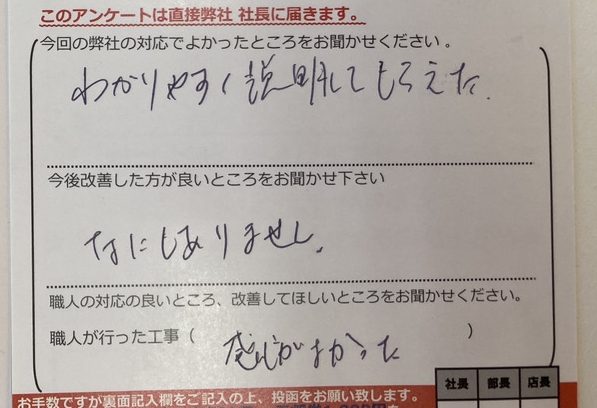 このアンケートは直接弊社 社長に届きます。
今回の弊社の対応でよかったところをお聞かせください。
わかりやすく説明してもらえた.
今後改善した方が良いところをお聞かせ下さい
なにもありません.
職人の対応の良いところ、改善してほしいところをお聞かせください。
職人が行った工事（ ）
感じがよかった
社長 部長 店長
お手数ですが裏面記入欄をご記入の上、投函をお願い致します。